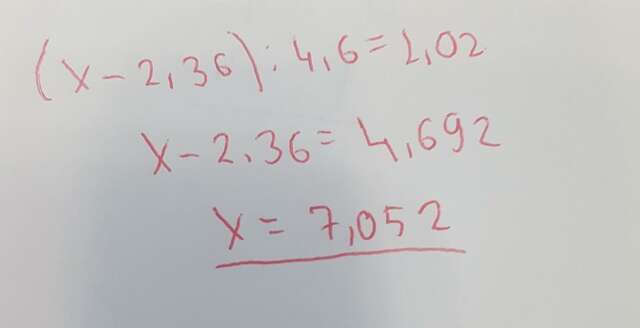 (x-2,36):4,6=1,02
x-2.36=4,692
x=7,052